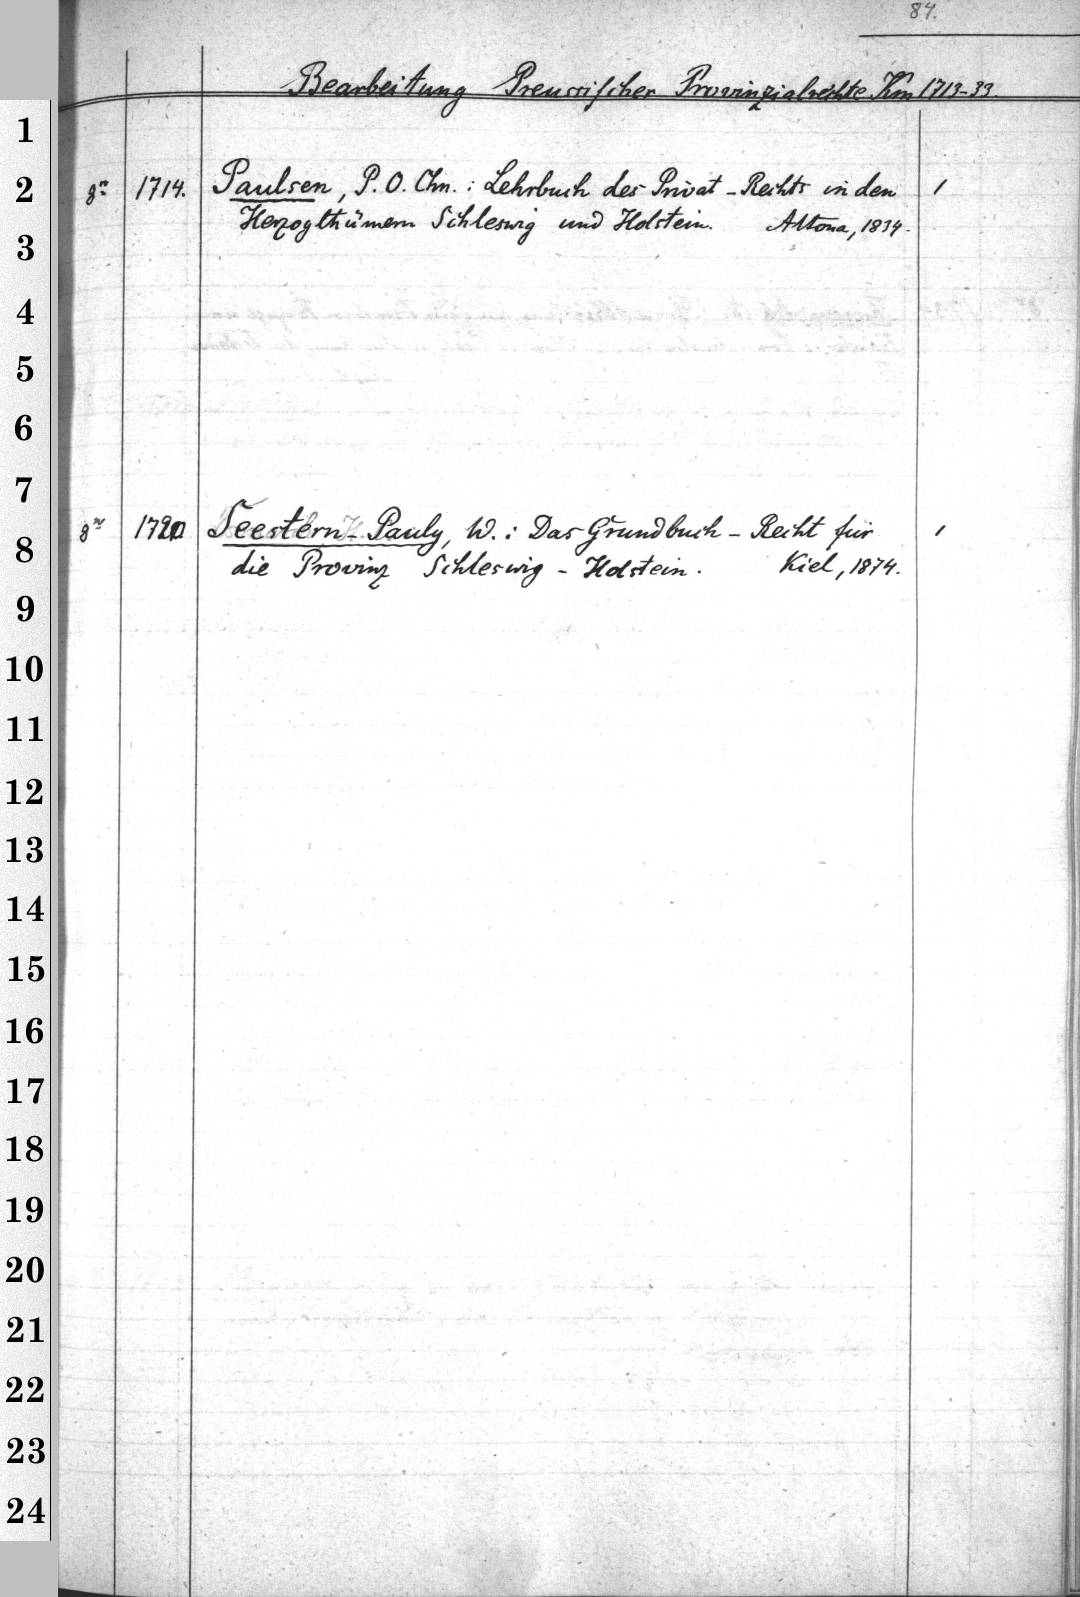 84.
Bearbeitung Preussischer Provinzialrechte Km 1713-33.
1
2 8° 1714. Paulsen, P. O. Chn. : Lehrbuch des Privat - Rechts in den 1
Herzogthümern Schleswig und Holstein. Altona, 1834.
3
4
5
6
7
8° 1720 Seestern-Pauly, W. : Das Grundbuch - Recht für 1
8
die Provinz Schleswig - Holstein. Kiel, 1874.
9
10
11
12
13
14
15
16
17
18
19
20
21
22
23
24